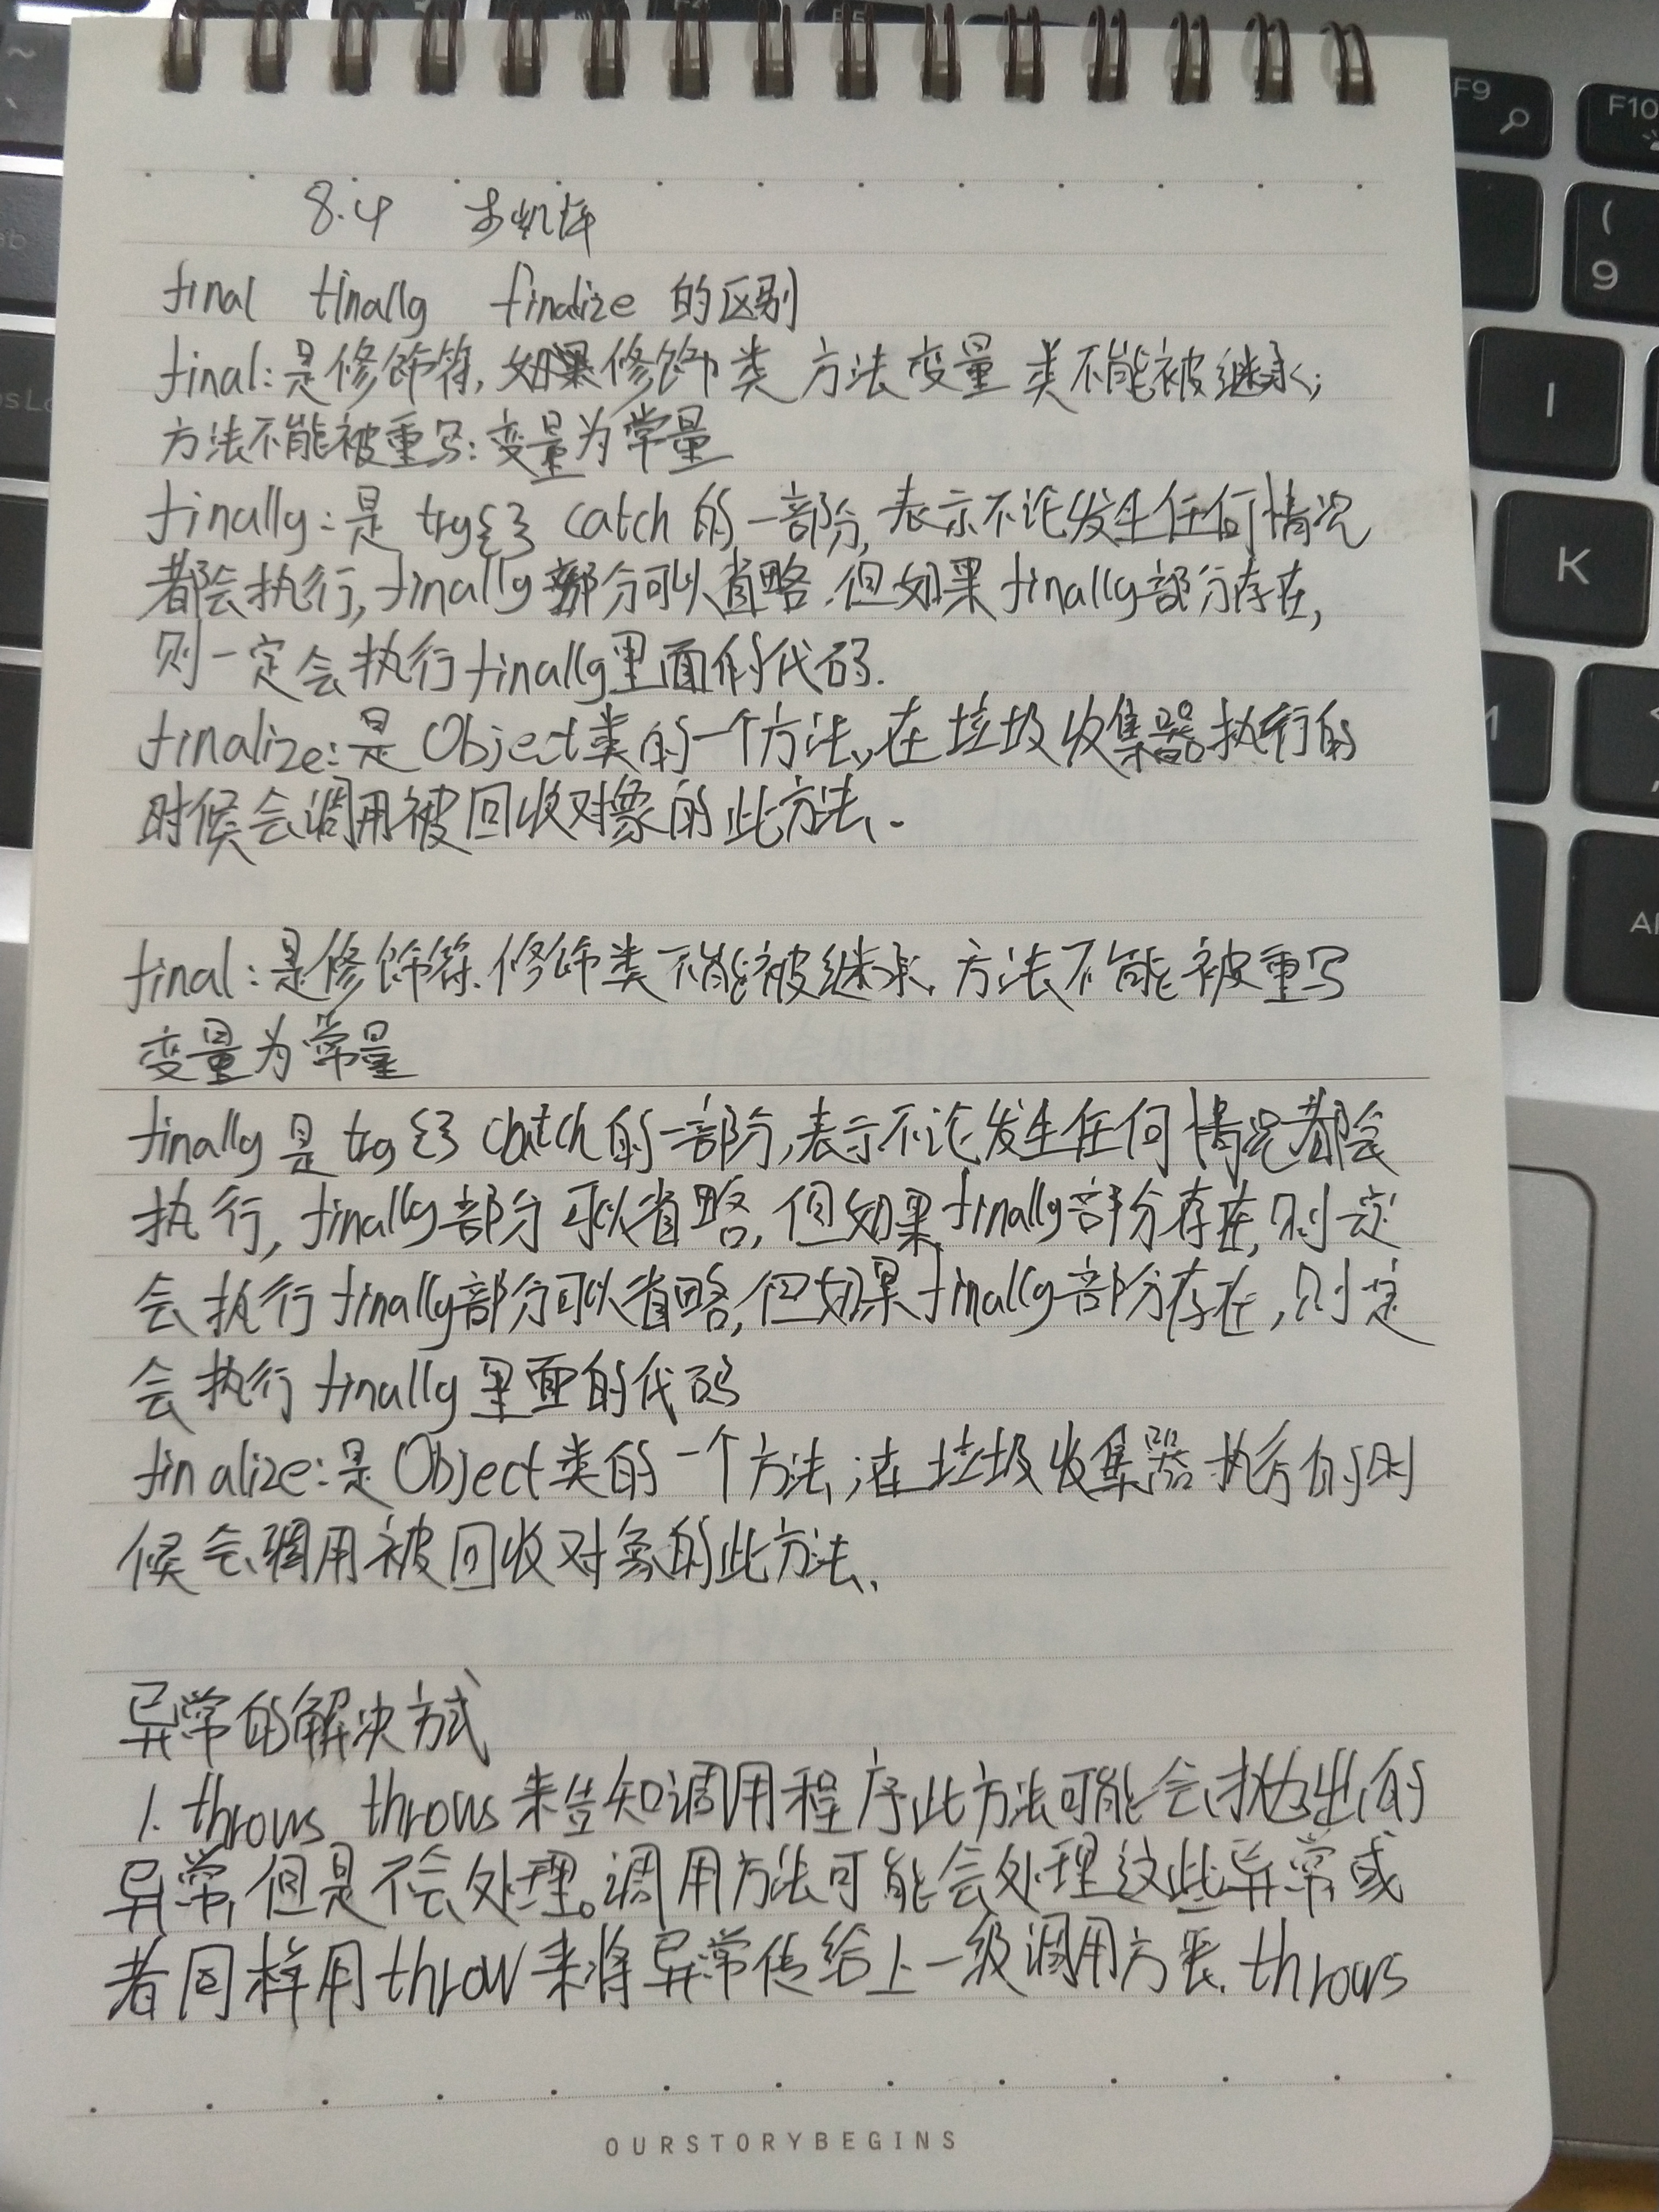 8.4
final finally finalize 的区别
final:是修饰符,如果修饰类 方法 变量 类不能被继承;
方法不能被重写;变量为常量
finally:是 try{} catch 的一部分,表示不论发生任何情况
都会执行,finally部分可以省略.但如果finally部分存在,
则一定会执行finally里面的代码.
finalize:是Object类的一个方法,在垃圾收集器执行的
时候会调用被回收对象的此方法.
final:是修饰符.修饰类不能被继承.方法不能被重写
变量为常量
finally 是 try{} catch的一部分,表示不论发生任何情况都会
执行,finally部分可以省略,但如果finally部分存在,则一定
会执行finally部分可以省略,但如果finally部分存在,则一定
会执行finally里面的代码
finalize:是Object类的一个方法;在垃圾收集器执行的时
候会调用被回收对象的此方法.
异常的解决方式
1. throws throws来告知调用程序此方法可能会抛出的
异常,但是不会处理。调用方法可能会处理这些异常或
者同样用throw来将异常传给上一级调用方法.throws
OURSTORYBEGINS
F9
F10
(
9
I
K